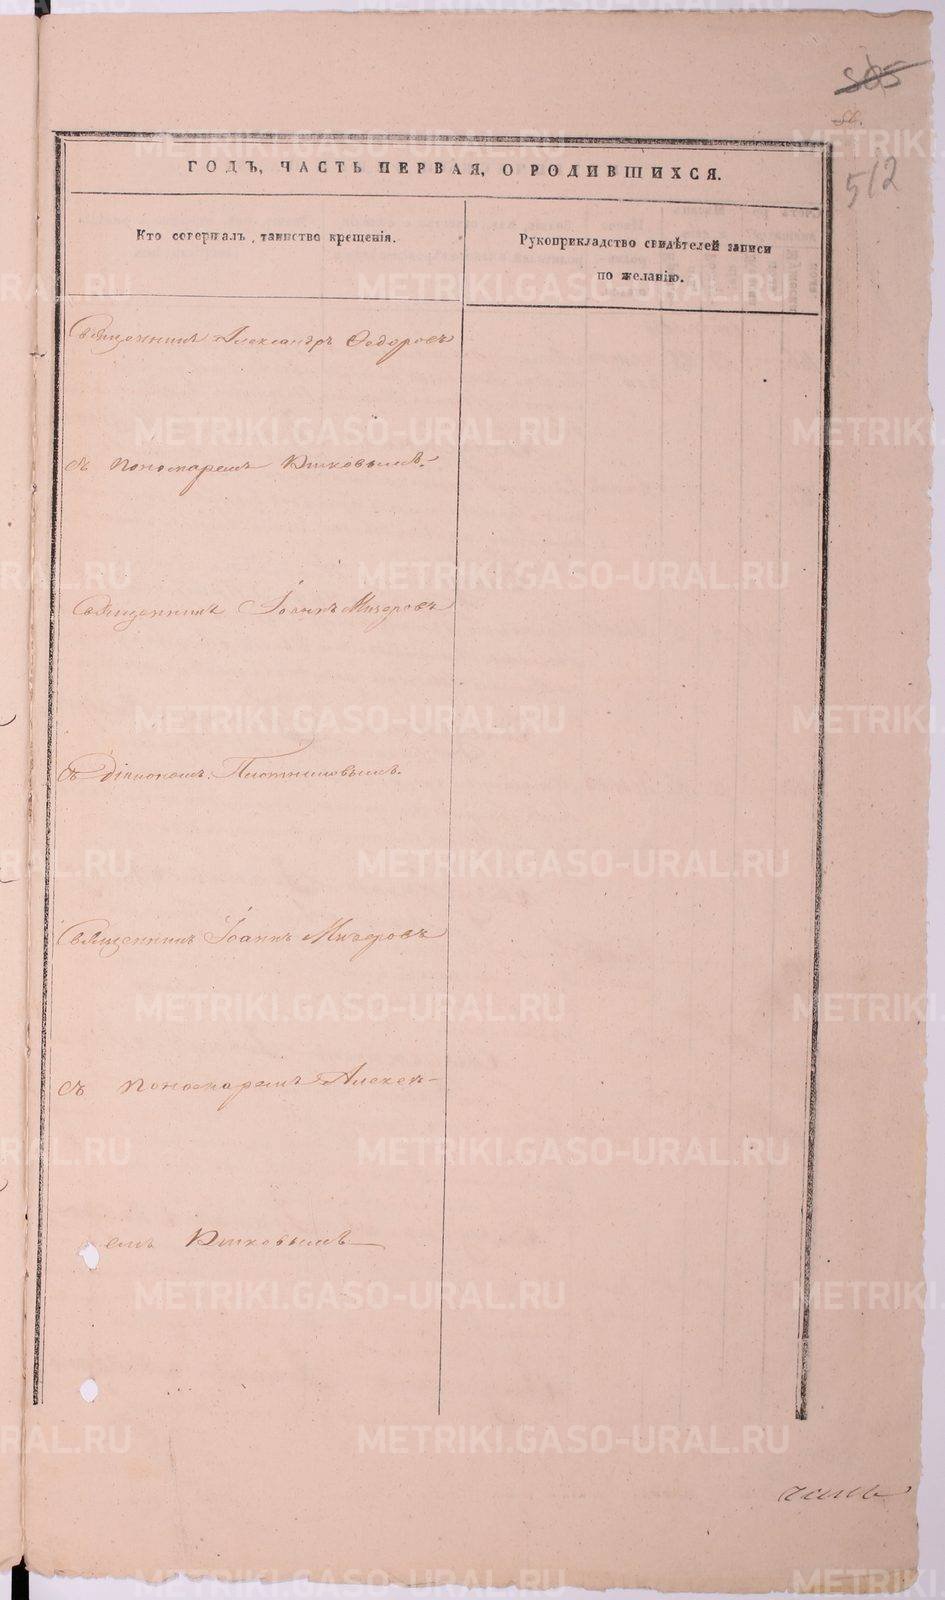 505
512
ГОДЪ, ЧАСТЬ ПЕРВАЯ, О РОДИВШИХСЯ.
Кто совершалъ таинство крещенія.
Рукоприкладство свидѣтелей записи
по желанію.
Священникъ Александръ Ѳедоровъ
съ пономаремъ
Священникъ Іоаннъ Мизеровъ
съ діакономъ Плотниковымъ.
Священникъ Іоаннъ Мизеровъ
съ пономаремъ Алексѣ-
емъ
METRIKI.GASO-URAL.RU